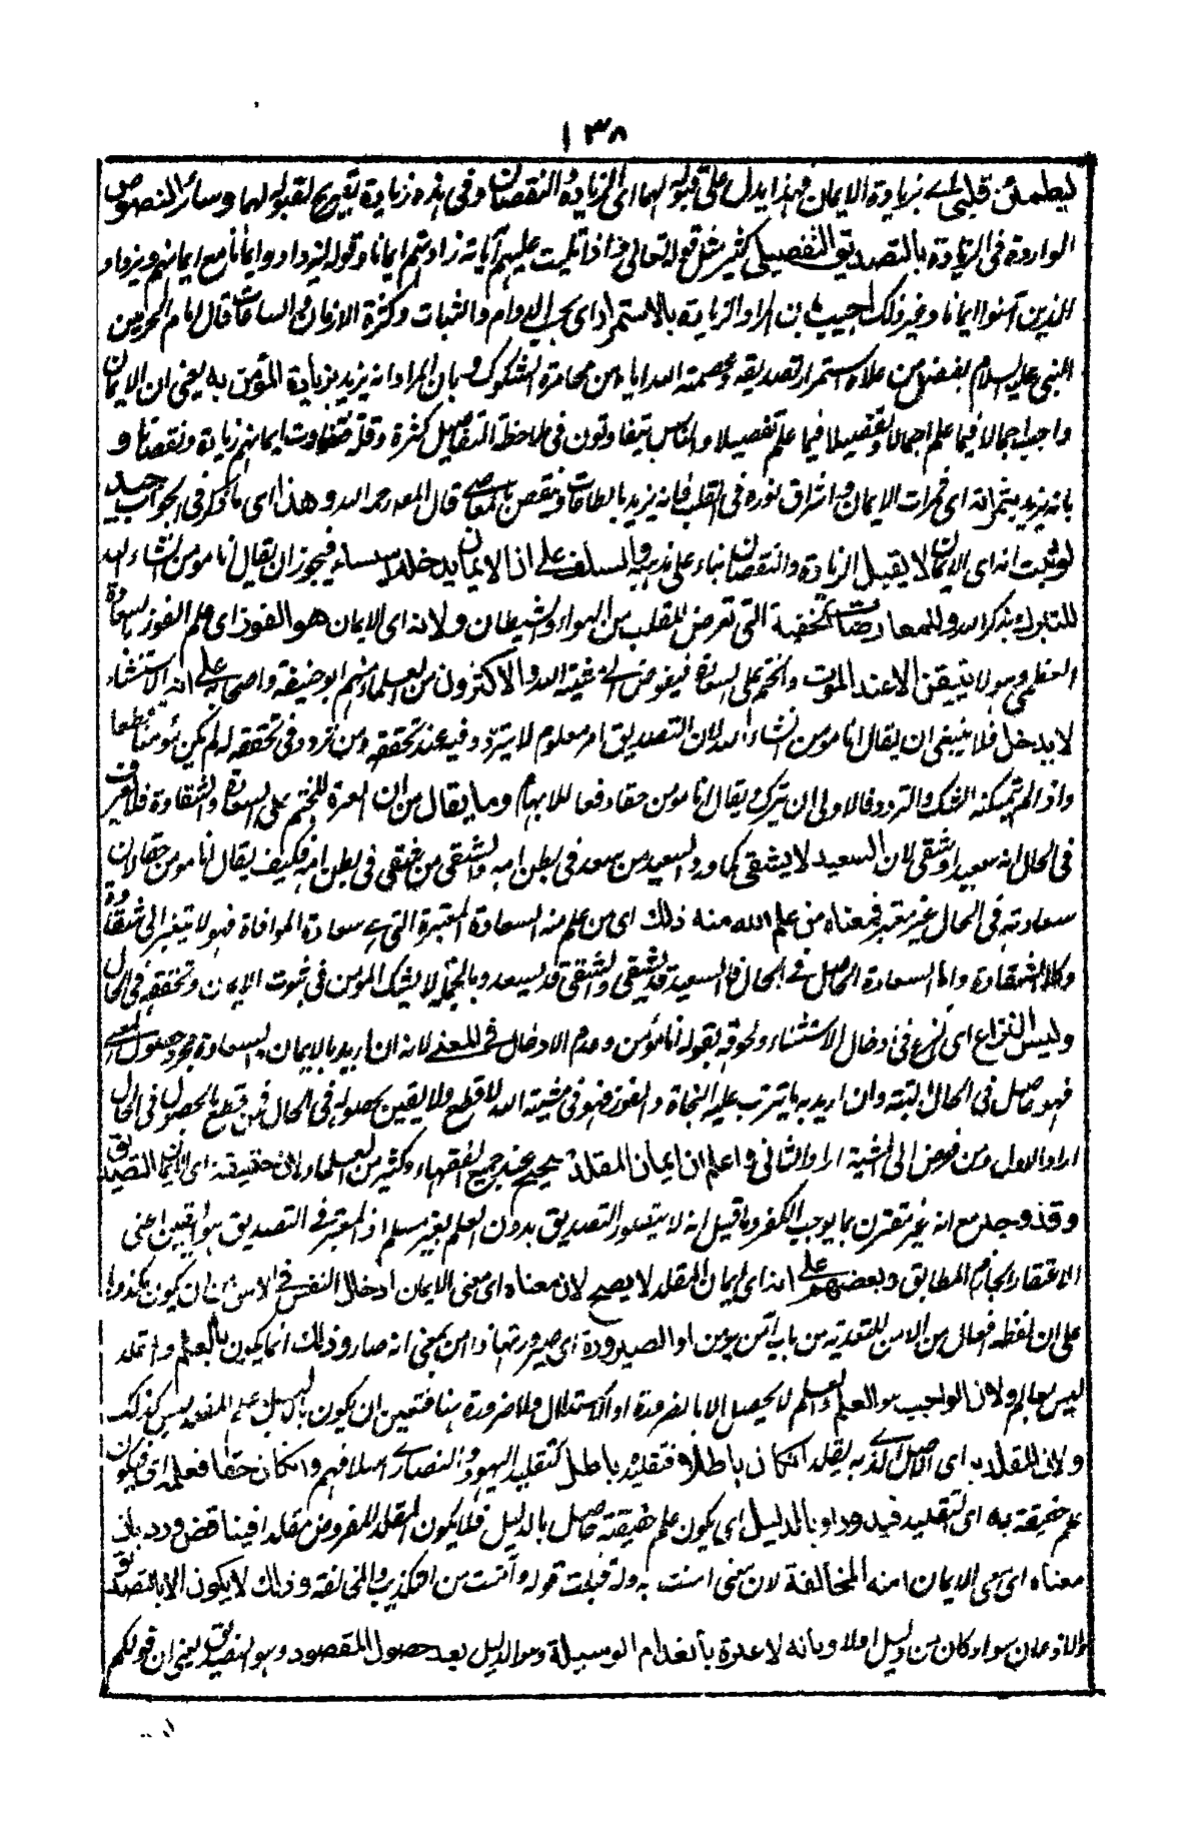 ١٣٨
ليطمئن قلبي اي بزيادة الايمان فهذا يدل على قبوله لهما اى الزيادة والنقصان وفى هذه زيادة تصريح لقبوله لهما وسائر النصوص
الواردة فى الزيادة بالتصديق التفصيلى كثير مثل قوله تعالى فاذا تليت عليهم آياته زادتهم ايمانا وقوله ليزدادوا ايمانا مع ايمانهم ويزداد
الذين آمنوا ايمانا وغير ذلك اجيب بان المراد الزيادة بالاستمرار اى بحسب الدوام والثبات وكثرة الازمان والساعات قال امام الحرمين
النبى عليه السلام يفضل من عداه باستمرار تصديقه وعصمة الله اياه من مخامرة الشكوك وبان المراد انه يزيد بزيادة المؤمن به يعنى ان الايمان
واجب اجمالا فيما علم اجمالا وتفصيلا فيما علم تفصيلا والناس يتفاوتون فى ملاحظة التفاصيل كثرة وقلة فتفاوت ايمانهم زيادة ونقصانا و
بانه يزيد بثمراته اى ثمرات الايمان واشراق نوره فى القلب فانه يزيد بالطاعات وينقص بالمعاصي قال المص رحمه الله وهذا اى ما ذكر فى الجواب جيد
لو ثبت انه اى الايمان لا يقبل الزيادة والنقصان بناء على مذهب السلف على ان الايمان يدخله فيجوز ان يقال انا مومن انشاء الله
للتبرك بذكر الله وللمعارضات الخفية التى تعرض للقلب من الهواء والشيطان ولانه اى الايمان هو الفوز اى علم الفوز بالسعادة
العظمى وهو لا يتيقن الا عند الموت والختم على السعادة فيفوض الى مشية الله والاكثرون من العلماء منهم ابو حنيفة واصحابه على انه اى الاستثناء
لا يدخل فلا ينبغى ان يقال انا مومن انشاء الله لان التصديق امر معلوم لا يتردد فيه عند تحققه ومن تردد فى تحققه له لم يكن مؤمنا قطعا
واذا لم يمكنه الشك والتردد فالاولى ان يترك ويقال انا مومن حقا دفعا للابهام وما يقال من ان العبرة للختم على السعادة والشقاوة فلا يعرف
فى الحال انه سعيد او شقى لان السعيد لا يشقى كما ورد السعيد من سعد فى بطن امه والشقى من شقى فى بطن امه فكيف يقال انا مومن حقا لان
سعادته فى الحال غير معتبر فمعناه من علم الله منه ذلك اى من علم منه السعادة المعتبرة التى هى سعادة الموافاة فهو لا يتغير الى شقاوة
وكذا الشقاوة واما السعادة الحاصل فى الحال فالسعيد قد يشقى والشقى قد يسعد وبالجملة لا يشك المومن فى ثبوت الايمان وتحققه فى الحال
وليس النزاع اى نزع فى ادخال الاستثناء ولحوقه بقوله انا مؤمن وعدم الادخال فى المعنى لانه ان اريد بالايمان والسعادة مجرد حصول المعنى
فهو حاصل فى الحال البتة وان اريد به ما يترتب عليه النجاة والفوز فهو فى مشية الله لا قطع ولا يقين بحصوله فى الحال فمن قطع بالحصول فى الحال
اراد الاول ومن فوض الى المشية اراد الثانى واعلم ان ايمان المقلد صحيح عند جميع الفقهاء وكثير من العلماء لان حقيقته اى الايمان التصديق
وقد وجد مع انه غير مقترن بما يوجب الكفر وما قيل انه لا يتصور التصديق بدون العلم غير مسلم اذ المعتبر فى التصديق هو اليقين اعنى
الاعتقاد الجازم المطابق وبعضهم على انه اى ايمان المقلد لا يصح لان معناه اى معنى الايمان ادخال النفس فى الامن من ان يكون مكذوبا
على ان لفظه افعال من الامن للتعدية من باب آمن يومن او الصيرورة اى صيرورتها ذا امن بمعنى انه صار وذلك انما يكون بالعلم والمقلد
ليس بعالم ولان الواجب هو العلم والعلم لا يحصل الا بالضرورة او الاستدلال ولا ضرورة هنا فتعين ان يكون بالدليل علم المقلد ليس كذلك
ولان المقلد به اى الاصل الذي به يقلد ان كان باطلا فتقليده باطل كتقليد اليهود والنصارى اسلافهم وان كان حقا فعلمه اى فيكون
علم حقيقة به اى التقليد فيدور او بالدليل اى يكون علم حقيقته حاصل بالدليل فلا يكون المقلد المفروض مقلدا فيناقض ورد بان
معناه اى معنى الايمان امنه المخالفة لان معنى امنت به وله قبلت قوله وآمنت من التكذيب والمخالفة وذلك لا يكون الا بالتصديق
والاذعان سواء كان من دليل اولا وبانه لا عبرة بانعدام الوسيلة وهو الدليل بعد حصول المقصود وهو التصديق يعنى ان قولكم